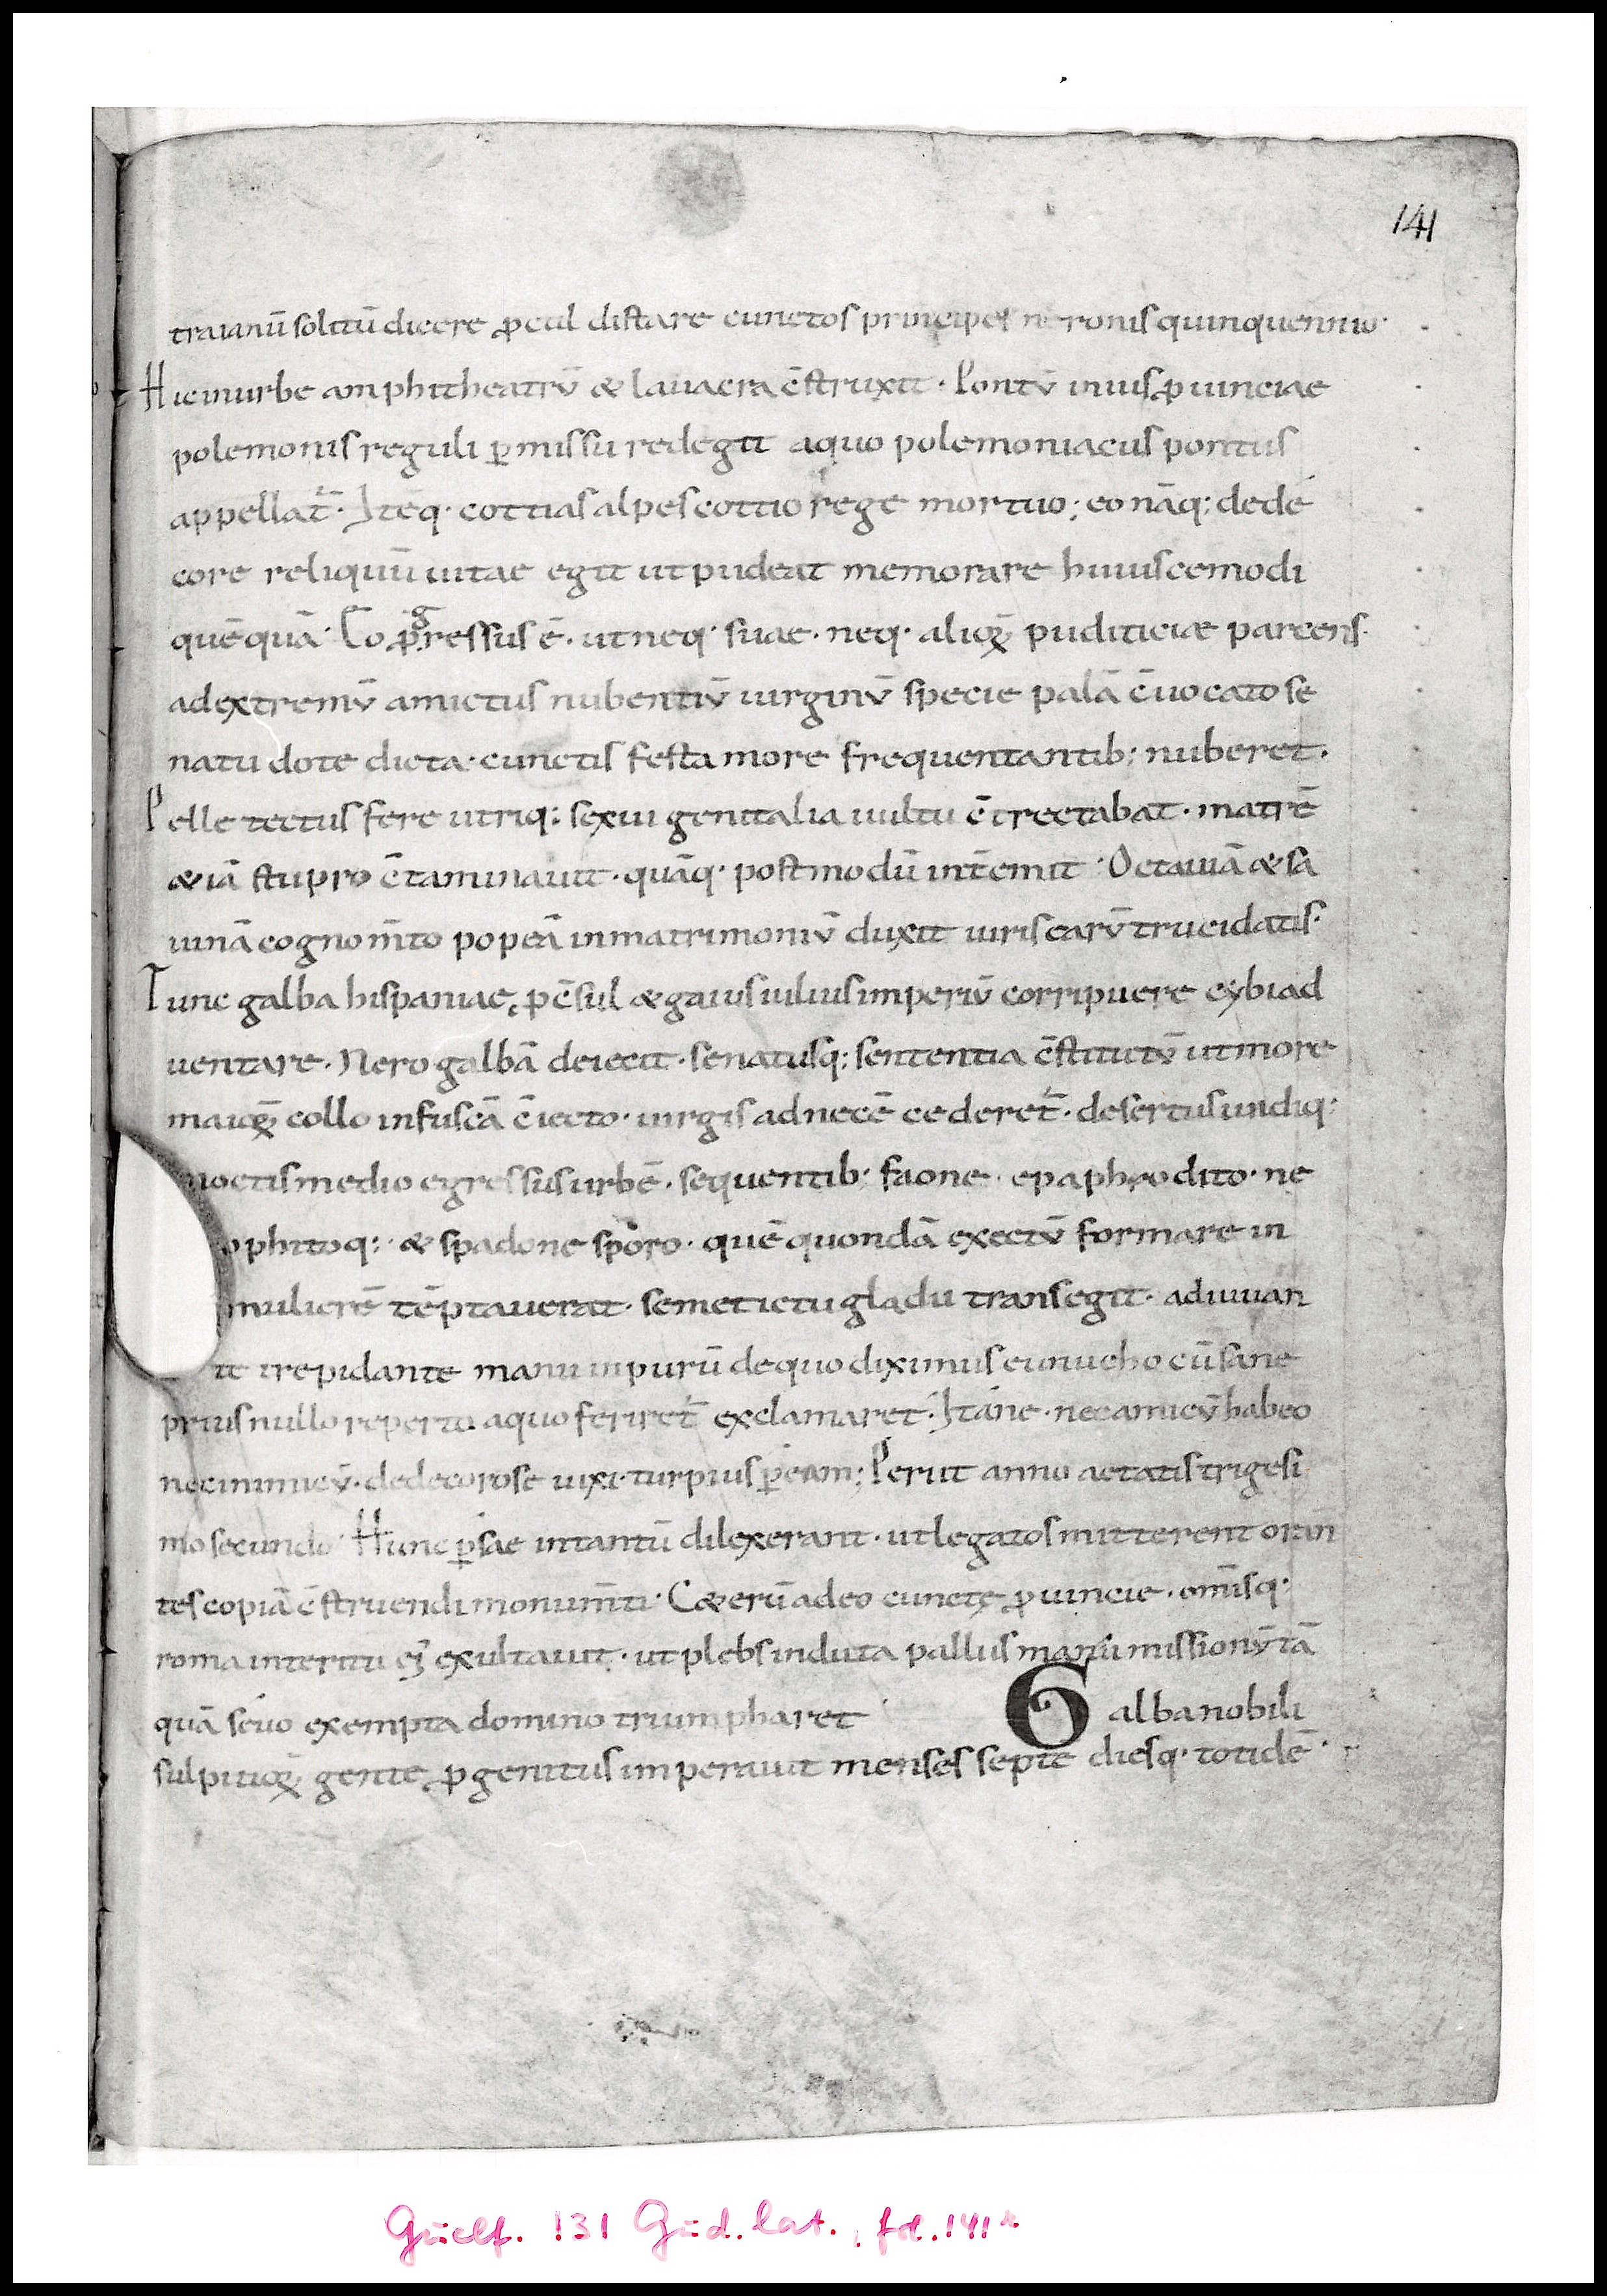 141
traianū solitū dicere ꝓcul distare cunctos principes neronis quinquennio·
Hic inurbe amphitheatrū & lauacra c̄struxit · Pontū iniusꝓuinciae
polemonis reguli ꝑmissu redegit aquo polemoniacus pontus
appellat᷑ · Itēq· cottias alpes cottio rege mortuo; eo nāq; dede
core reliquū uitae egit ut pudeat memorare huiuscemodi
quēquā · Eo ꝓgressus ē · ut neq· suae · neq· alioꝝ pudiciciae parcens·
ad extremū amictus nubentiū uirginū specie palā c̄uocato se
natu dote dicta · cunctis festa more frequentantib; nuberet ·
Pelle tectus fere utriq; sexui genitalia uultu c̄trectabat · matrē
&iā stupro c̄taminauit · quāq· postmodū int̄emit · Octauiā & sa
uinā cognom̄to popeā inmatrimoniū duxit uiris earū trucidatis·
Tunc galba hispaniae ꝓc̄sul & gaius iulius imperiū corripuere eẏbiad
uentare · Nero galbā deiecit · senatusq; sententia c̄stitutū ut more
maioꝝ collo infuscā c̄iecto · uirgis adnecē cederet᷑ · desertus undiq;
noctis medio egressus urbē · sequentib; faone · epaphrodito · ne
ophitoq; · & spadone sporo · quē quondā exectū formare in
mulierē tēptauerat · semet ictu gladii transegit · adiuuan
te trepidante manu inpurū dequo diximus eunucho cū sane
prius nullo reperto aquo feriret᷑ exclamaret · Itane · nec amicū habeo
nec inimicū · dedecorose uixi · turpius ꝑeam; Periit anno aetatis trigesi
mo secundo · Hunc ꝑsae intantū dilexerant · ut legatos mitterent oran
tes copiā c̄struendi monum̄ti · C&erū adeo cunctę ꝓuincie · om̄isq;
roma interitu eꝯ exultauit · ut plebs induta palliis manumissionū tā
quā seuo exempta domino triumpharet · Galba nobili
sulpitioꝝ gente ꝓgenitus imperauit menses septē diesq· totidē ·
Guelf. 131 Gud. lat., fol. 141ʳ